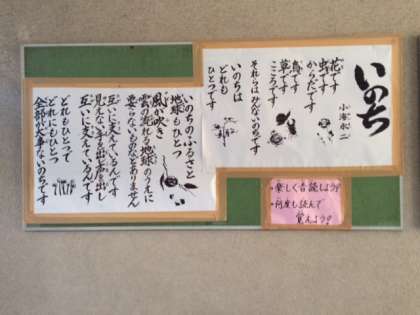 いのち
小海永二
花です
虫です
からだです
鳥です
草です
こころです
それらはみんないのちです
いのちは
どれも
ひとつです
いのちのふるさと
地球もひとつ
風が吹き
雲の流れる地球のうえに
要らないものなどありません
互いに支えているんです
見えない手を出し声を出し
互いに支えているんです
どれもひとつで
どれにもひとつ
全部が大事ないのちです
・楽しく音読しよう!
・何度も読んで
覚えよう!